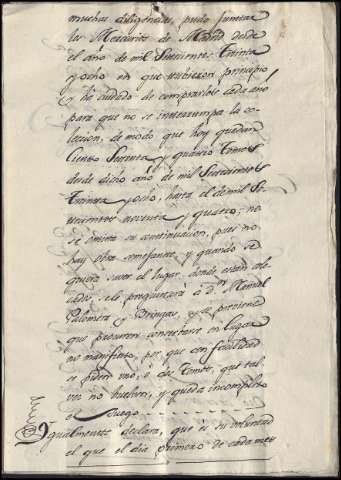 muchas diligencias, pude juntar
los Mercurios de Madrid desde
el año de mil Setecientos, treinta
y ocho en que tubieron principio
y he cuidado de comprarlos cada año
para que no se interrumpa la co-
leccion, de modo que hoy quedan
Ciento Setenta y quatro tomos
desde dicho año de mil Setecientos
treinta y ocho, hasta el de mil Se-
tecientos noventa y quatro; no
se omita su continuacion, pues no
hay obra semejante, y quando se
quiera saver el lugar donde estan colo-
cados, se le preguntará a Dn. Manuel
Palomera y Bringas, y se previene
que procuren conservarse en lugar
no manifiesto, por que con facilidad
se piden uno, ó dos tomos, que tal
vez no buelven, y queda incompleto
el Juego
Ygualmente declara, que es su voluntad
el que el dia primero de cada mes